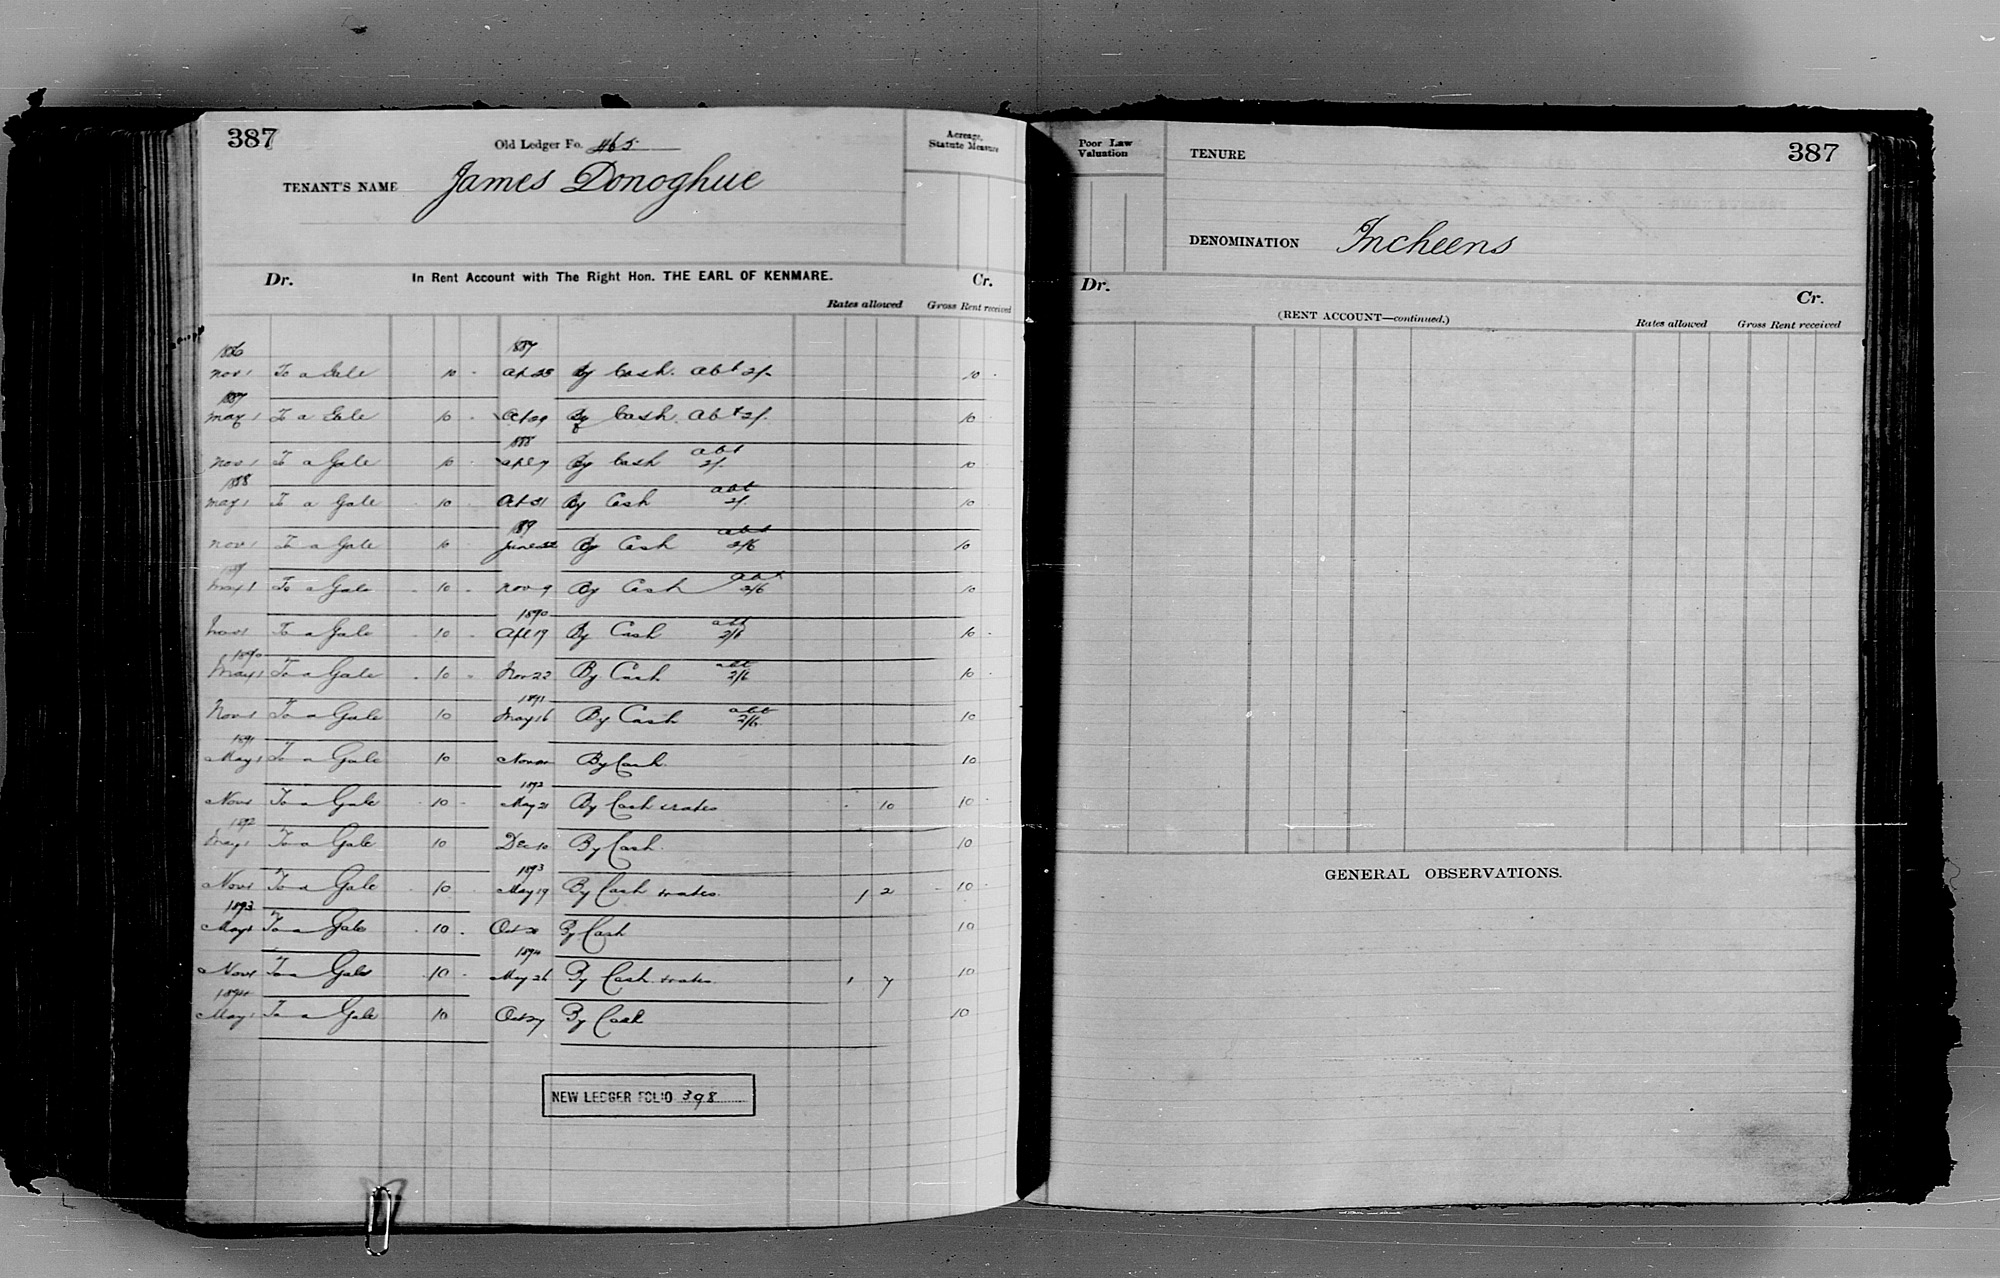 387
Old Ledger Fo. 465
Acreage, Statute Measure
TENANT'S NAME James Donoghue
Dr. In Rent Account with The Right Hon. THE EARL OF KENMARE. Cr.
Rates allowed Gross Rent received
1886 1887
Nov 1 To a Gale 10 - Ap 23 By Cash. Abt 2/- 10 -
1887
May 1 To a Gale 10 - Oct 29 By Cash. Abt 2/- 10
1888
Nov 1 To a Gale 10 - Apl 7 By Cash abt 2/- 10
1888
May 1 To a Gale 10 - Oct 31 By Cash abt 2/- 10
1889
Nov 1 To a Gale 10 - June 22 By Cash abt 2/6 10
1889
May 1 To a Gale - 10 - Nov 9 By Cash abt 2/6 10
1890
Nov 1 To a Gale - 10 - Apl 19 By Cash abt 2/6 10 -
1890
May 1 To a Gale - 10 - Nov 22 By Cash abt 2/6 10 -
1891
Nov 1 To a Gale 10 May 16 By Cash abt 2/6 10
1891
May 1 To a Gale 10 Nov By Cash 10
1892
Nov 1 To a Gale - 10 - May 21 By Cash & rates - 10 10 -
1892
May 1 To a Gale 10 Dec 10 By Cash 10
1893
Nov 1 To a Gale - 10 - May 19 By Cash & rates 1 2 - 10 -
1893
May 1 To a Gale - 10 - Oct By Cash 10
1894
Nov 1 To a Gale - 10 - May 26 By Cash & rates 1 7 10
1894
May 1 To a Gale 10 Oct 27 By Cash 10
NEW LEDGER FOLIO 398
Poor Law Valuation
TENURE
387
DENOMINATION Incheens
Dr. Cr.
(RENT ACCOUNT—continued.)
Rates allowed Gross Rent received
GENERAL OBSERVATIONS.